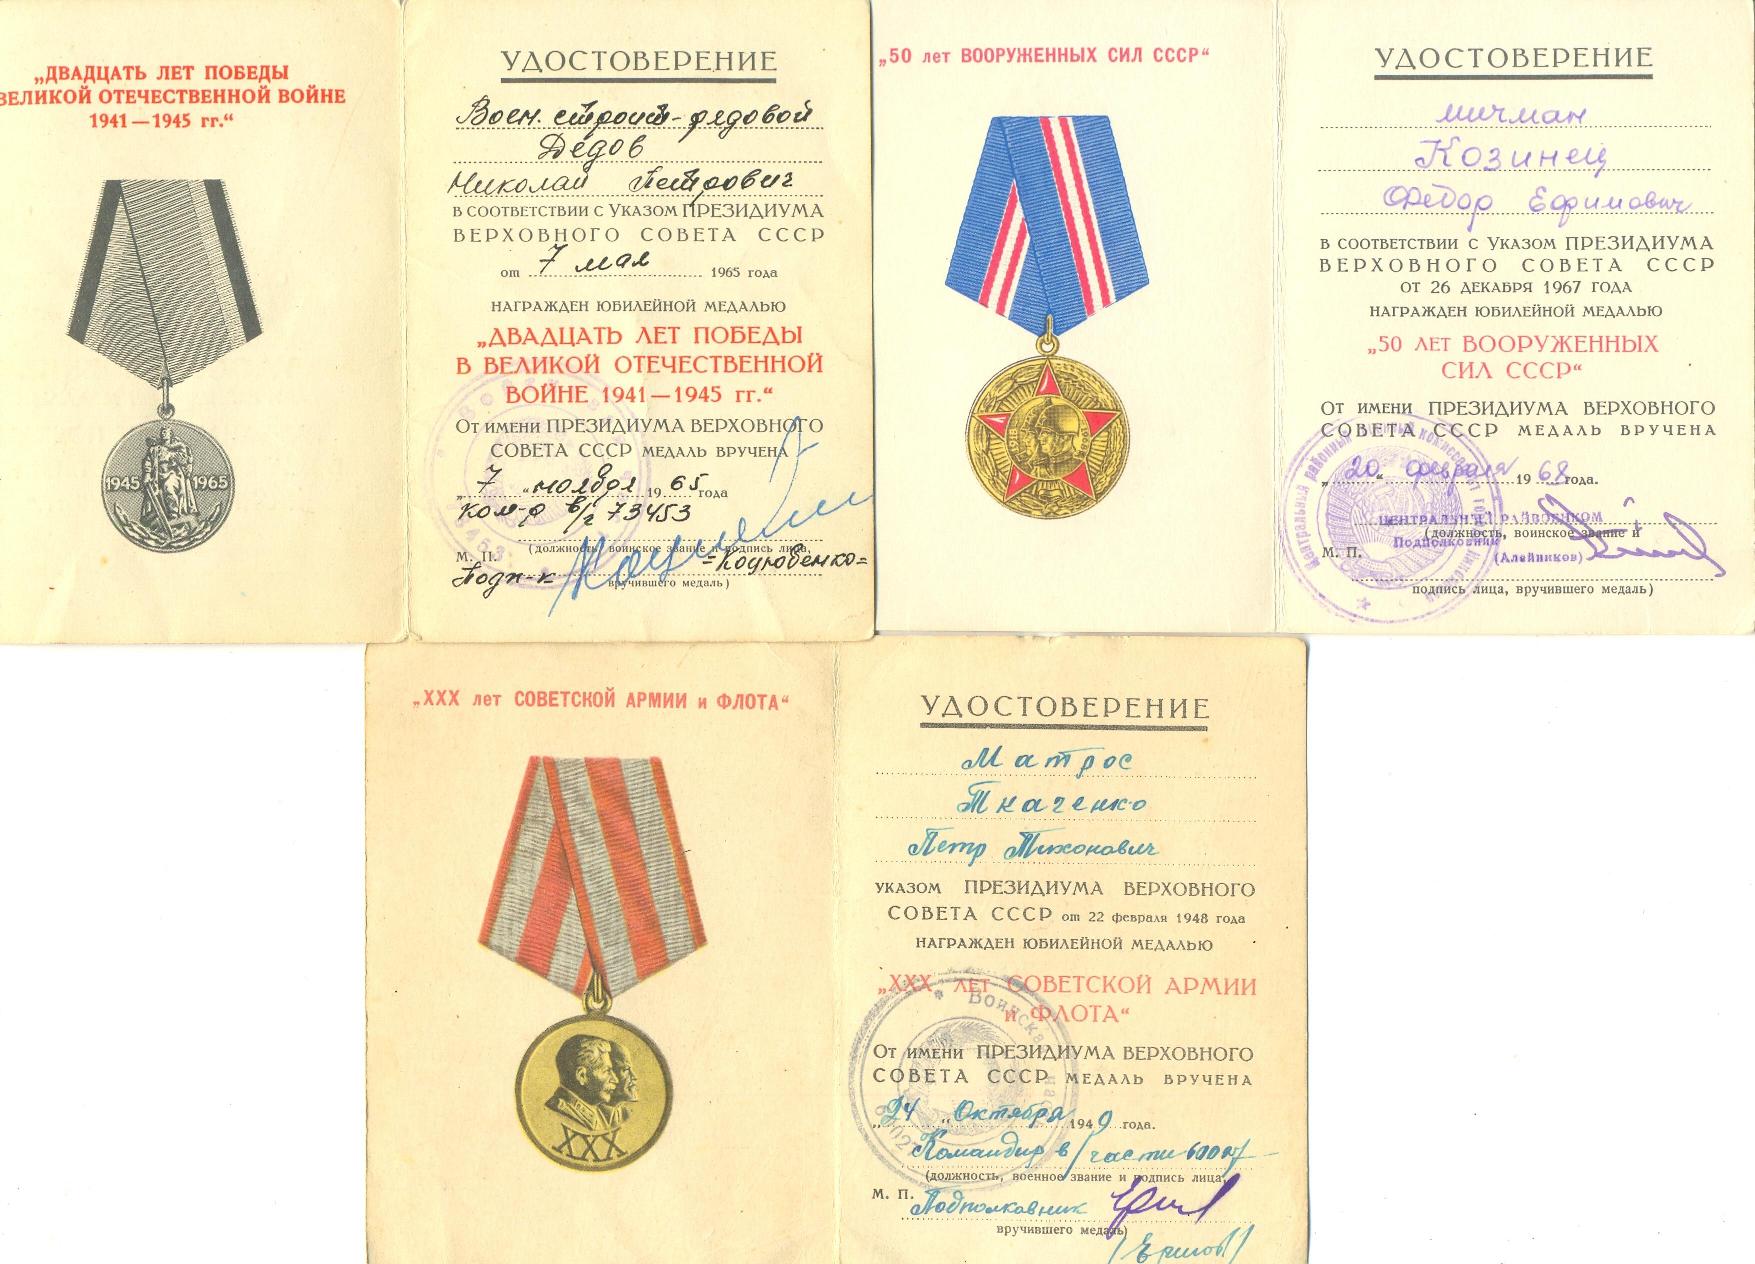 „ДВАДЦАТЬ ЛЕТ ПОБЕДЫ
ВЕЛИКОЙ ОТЕЧЕСТВЕННОЙ ВОЙНЕ
1941—1945 гг.“
1945 1965
УДОСТОВЕРЕНИЕ
Воен. строит-рядовой
Дедов
Николай Петрович
В СООТВЕТСТВИИ С УКАЗОМ ПРЕЗИДИУМА
ВЕРХОВНОГО СОВЕТА СССР
от 7 мая 1965 года
НАГРАЖДЕН ЮБИЛЕЙНОЙ МЕДАЛЬЮ
„ДВАДЦАТЬ ЛЕТ ПОБЕДЫ
В ВЕЛИКОЙ ОТЕЧЕСТВЕННОЙ
ВОЙНЕ 1941—1945 гг.“
От имени ПРЕЗИДИУМА ВЕРХОВНОГО
СОВЕТА СССР МЕДАЛЬ ВРУЧЕНА
„7“ ноября 1965 года
Ком-р в/ч 73453
(должность, воинское звание и подпись лица,
М. П.
Подп-к =Кодюбенко=
вручившего медаль)
„50 лет ВООРУЖЕННЫХ СИЛ СССР“
УДОСТОВЕРЕНИЕ
мичман
Козинец
Федор Ефимович
В СООТВЕТСТВИИ С УКАЗОМ ПРЕЗИДИУМА
ВЕРХОВНОГО СОВЕТА СССР
ОТ 26 ДЕКАБРЯ 1967 ГОДА
НАГРАЖДЕН ЮБИЛЕЙНОЙ МЕДАЛЬЮ
„50 ЛЕТ ВООРУЖЕННЫХ
СИЛ СССР“
От имени ПРЕЗИДИУМА ВЕРХОВНОГО
СОВЕТА СССР МЕДАЛЬ ВРУЧЕНА
„20“ февраля 1968 года.
ЦЕНТРАЛЬНЫЙ РАЙВОЕНКОМ
(должность, воинское звание и
Подполковник
М. П.
(Алейников)
подпись лица, вручившего медаль)
„XXX лет СОВЕТСКОЙ АРМИИ и ФЛОТА“
XXX
УДОСТОВЕРЕНИЕ
Матрос
Ткаченко
Петр Тихонович
УКАЗОМ ПРЕЗИДИУМА ВЕРХОВНОГО
СОВЕТА СССР от 22 февраля 1948 года
НАГРАЖДЕН ЮБИЛЕЙНОЙ МЕДАЛЬЮ
„XXX ЛЕТ СОВЕТСКОЙ АРМИИ
и ФЛОТА“
От имени ПРЕЗИДИУМА ВЕРХОВНОГО
СОВЕТА СССР МЕДАЛЬ ВРУЧЕНА
„24“ Октября 1949 года.
Командир в/части
(должность, военное звание и подпись лица,
М. П.
Подполковник
вручившего медаль)
(Ершов)